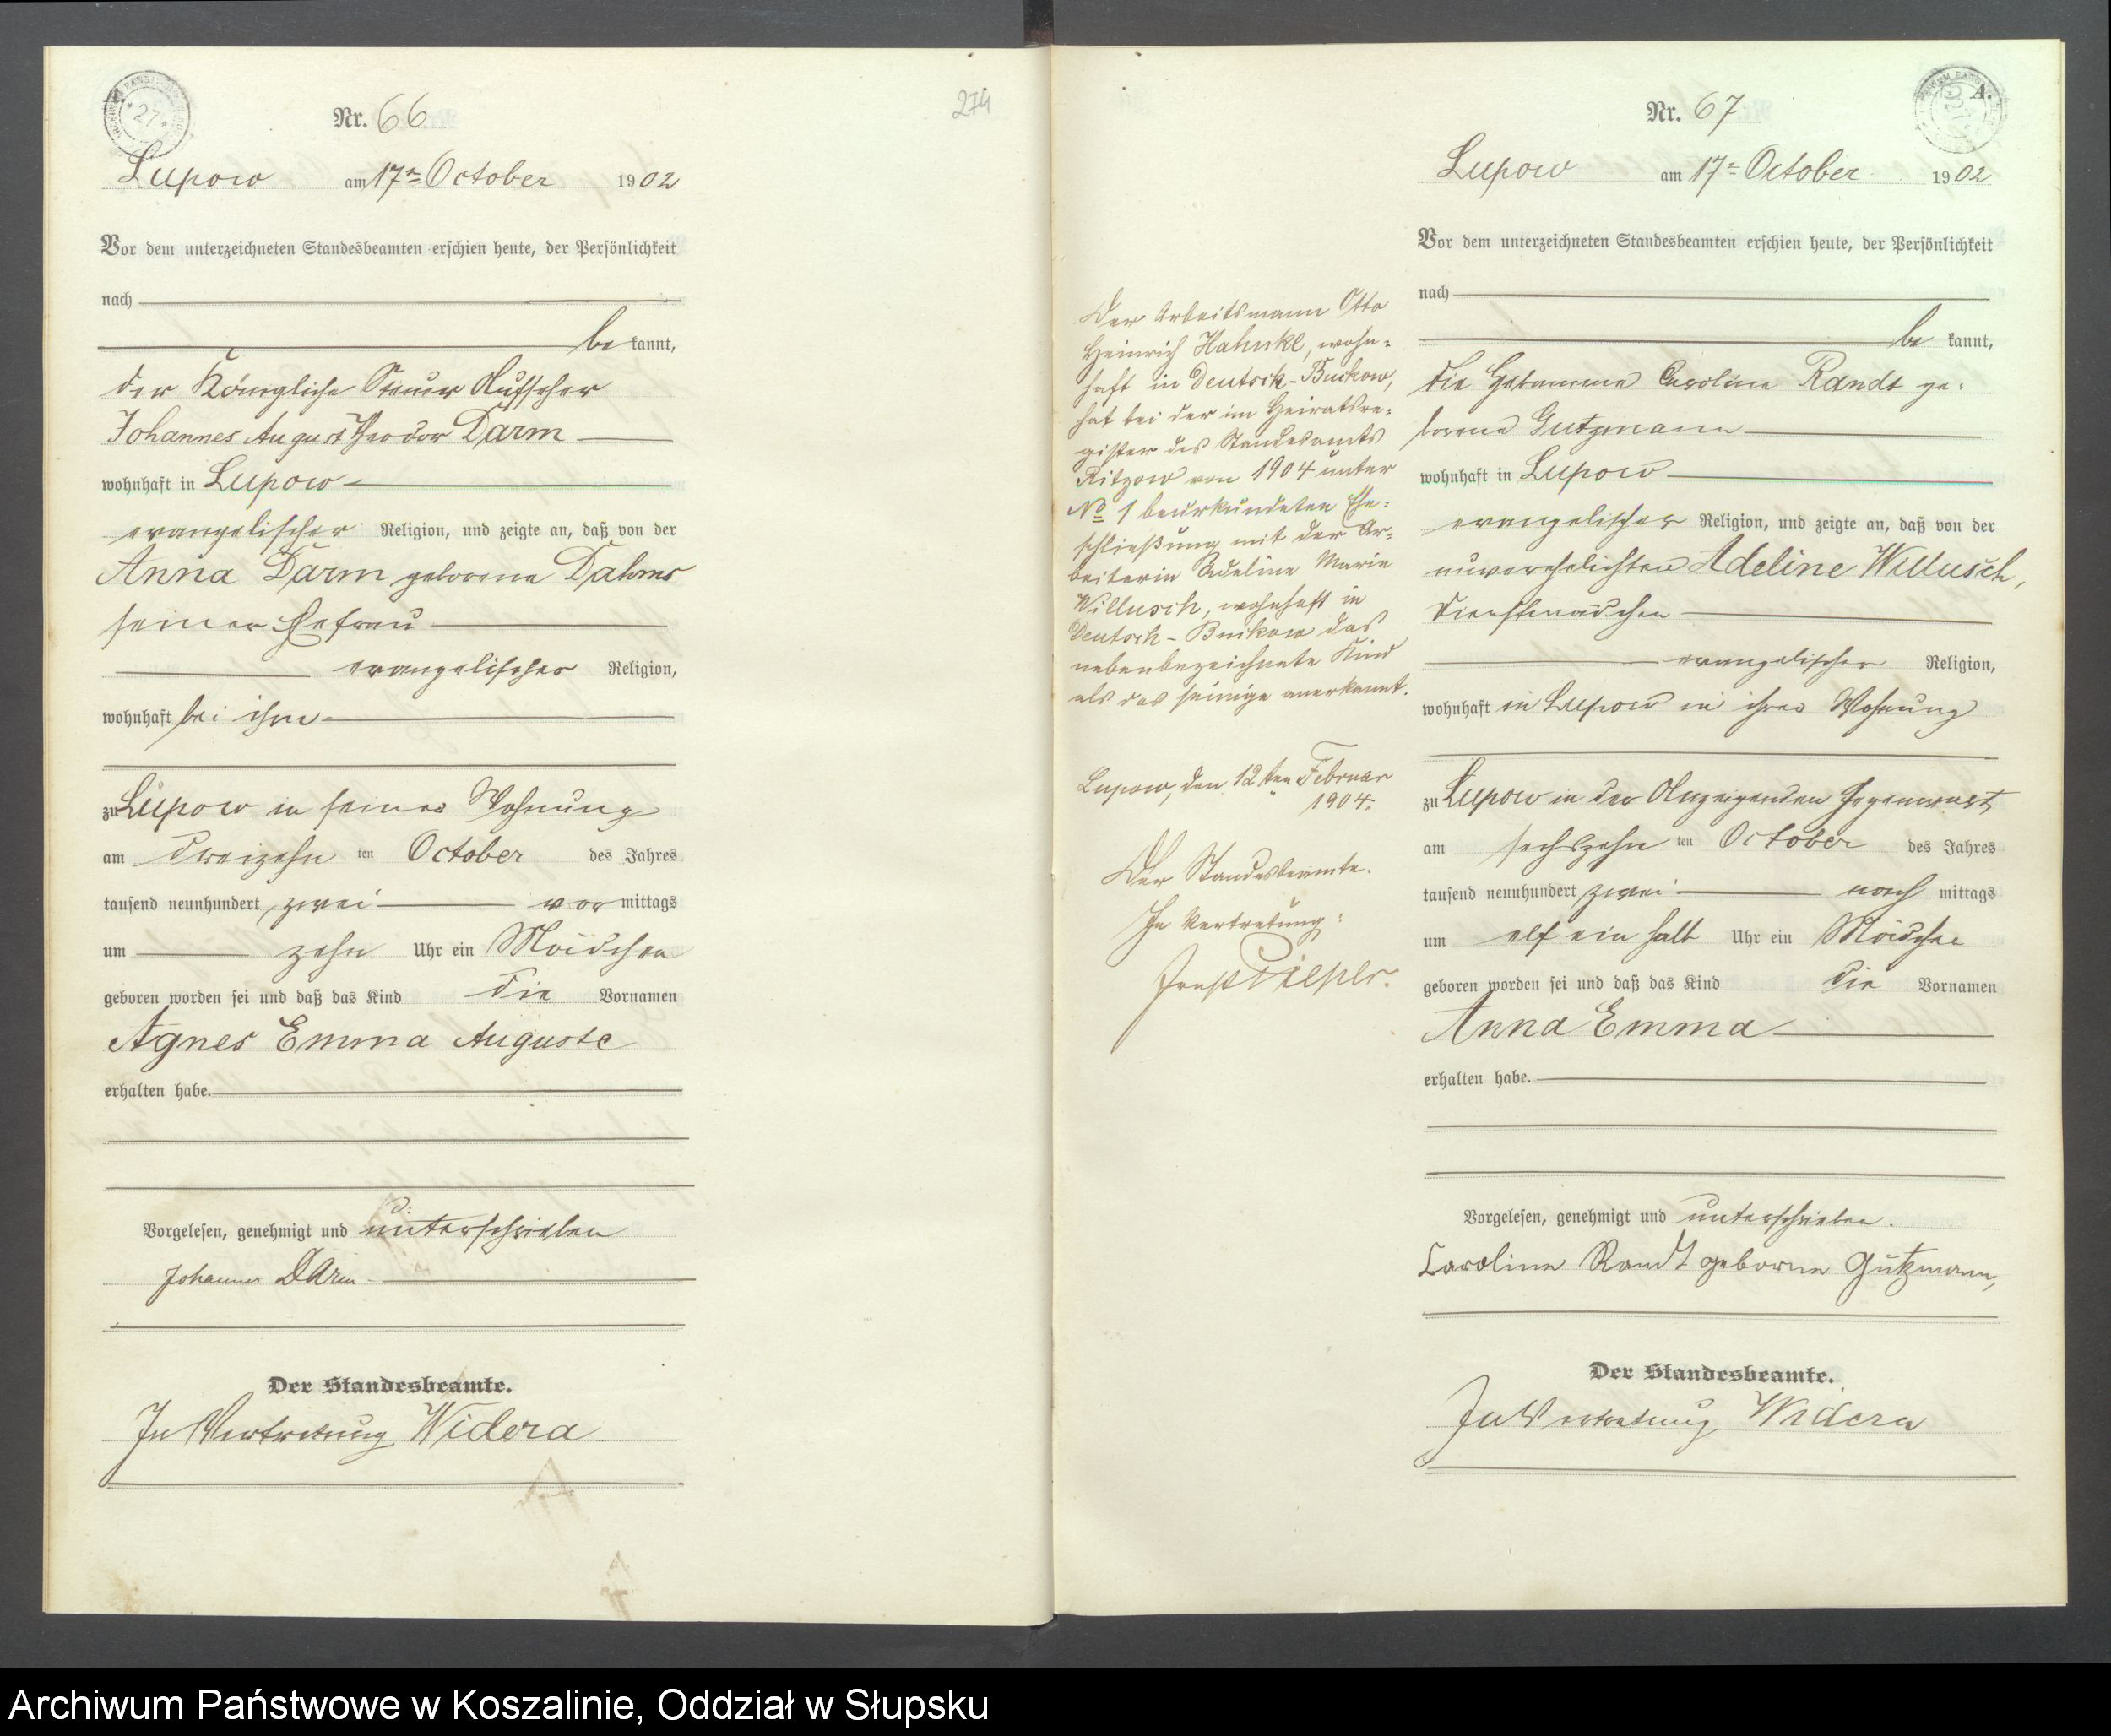 Nr. 66
Lupow am 17ten October 1902
Vor dem unterzeichneten Standesbeamten erschien heute, der Persönlichkeit
nach
be kannt,
der Königliche Steuer Aufseher
Johannes August Theodor Darm
wohnhaft in Lupow
evangelischer Religion, und zeigte an, daß von der
Anna Darm geborene Dahms
seiner Ehefrau
evangelischer Religion,
wohnhaft bei ihm
zu Lupow in seiner Wohnung
am dreizehn ten October des Jahres
tausend neunhundert zwei vor mittags
um zehn Uhr ein Mädchen
geboren worden sei und daß das Kind die Vornamen
Agnes Emma Auguste
erhalten habe.
Vorgelesen, genehmigt und unterschrieben
Johannes Darm
Der Standesbeamte.
In Vertretung Widera
274
Der Arbeitsmann Otto
Heinrich Hahnke, wohn-
haft in Deutsch-Buckow,
hat bei der im Heiratsre-
gister des Standesamts
Ritzow von 1904 unter
No 1 beurkundeten Ehe-
schließung mit der Ar-
beiterin Adeline Marie
Willusch, wohnhaft in
Deutsch-Buckow das
nebenbezeichnete Kind
als das seinige anerkannt.
Lupow, den 12ten Februar
1904.
Der Standesbeamte.
In Vertretung:
A.
Nr. 67
Lupow am 17ten October 1902
Vor dem unterzeichneten Standesbeamten erschien heute, der Persönlichkeit
nach
be kannt,
die Hebamme Caroline Randt ge-
borene Gutzmann
wohnhaft in Lupow
evangelischer Religion, und zeigte an, daß von der
unverehelichten Adeline Willusch,
Dienstmädchen
evangelischer Religion,
wohnhaft in Lupow in ihrer Wohnung
zu Lupow in der Anzeigenden Gegenwart
am sechszehn ten October des Jahres
tausend neunhundert zwei nach mittags
um elf ein halb Uhr ein Mädchen
geboren worden sei und daß das Kind die Vornamen
Anna Emma
erhalten habe.
Vorgelesen, genehmigt und unterschrieben.
Caroline Randt geborne Gützmann,
Der Standesbeamte.
In Vertretung Widera
Archiwum Państwowe w Koszalinie, Oddział w Słupsku